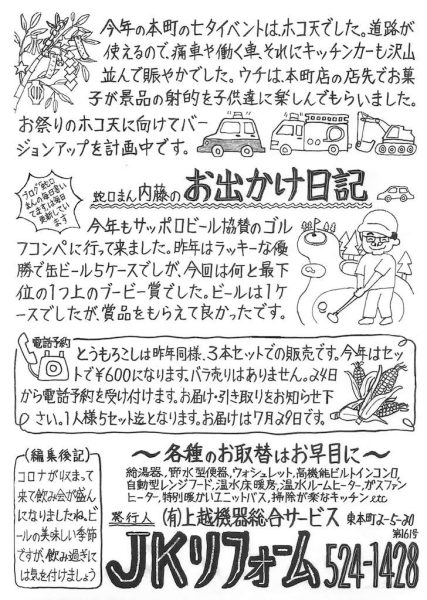 今年の本町の七夕イベントは、ホコ天でした。道路が
使えるので、痛車や働く車、それにキッチンカーも沢山
並んで賑やかでした。ウチは、本町店の店先でお菓
子が景品の射的を子供達に楽しんでもらいました。
お祭りのホコ天に向けてバー
ジョンアップを計画中です。
ブログ「蛇口
まんの毎日笑い
て過ごす」は毎日
更新してい
ます
蛇口まん内藤のお出かけ日記
今年もサッポロビール協賛のゴル
フコンペに行って来ました。昨年はラッキーな優
勝で缶ビール5ケースでしが、今回は何と最下
位の1つ上のブービー賞でした。ビールは1ケ
ースでしたが、賞品をもらえて良かったです。
電話予約
とうもろこしは昨年同様、3本セットでの販売です。今年はセッ
トで¥600になります。バラ売りはありません。24日
から電話予約を受け付けます。お届け・引き取りをお知らせ下
さい。1人様5セット迄となります。お届けは7月29日です。
(編集後記)
コロナが収まって
来て飲み会が盛ん
になりましたね。ビ
ールの美味しい季節
ですが、飲み過ぎに
は気を付けましょう
〜各種のお取替はお早目に〜
給湯器、貯水型便器、ウォシュレット、高機能ビルトインコンロ、
自動型レンジフード、温水床暖房、温水ルームヒーター、ガスファン
ヒーター、特別暖かいユニットバス、掃除が楽なキッチンetc
発行人 (有)上越機器総合サービス 東本町2-5-20
第161号
JKリフォーム 524-1428